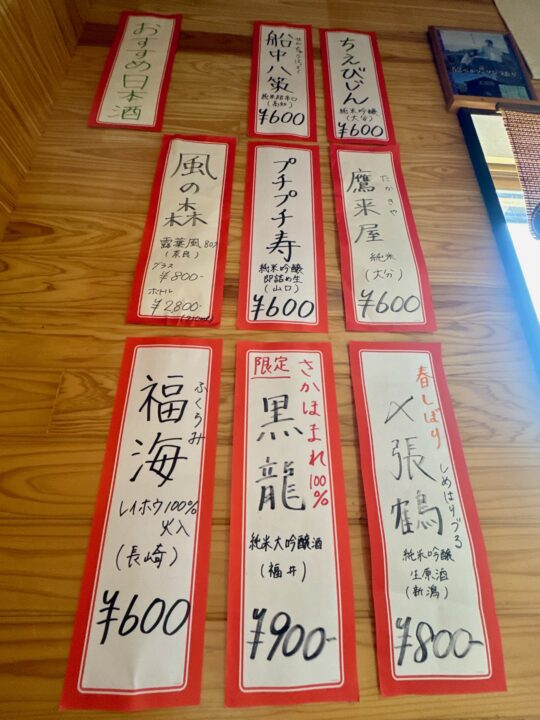 おすすめ日本酒
せんちゅうはっさく
船中八策
純米超辛口
(高知)
¥600
ちえびじん
純米吟醸
(大分)
¥600
風の森
露葉風807
(奈良)
グラス
¥800-
ボトル
¥2800-
(720ml)
プチプチ寿
純米吟醸
即詰め生
(山口)
¥600
たかきや
鷹来屋
純米
(大分)
¥600
ふくうみ
福海
レイホウ100%
火入
(長崎)
¥600
限定
さかほまれ100%
黒龍
純米大吟醸酒
(福井)
¥900-
春しぼり
〆張鶴
しめはりづる
純米吟醸
生原酒
(新潟)
¥800-